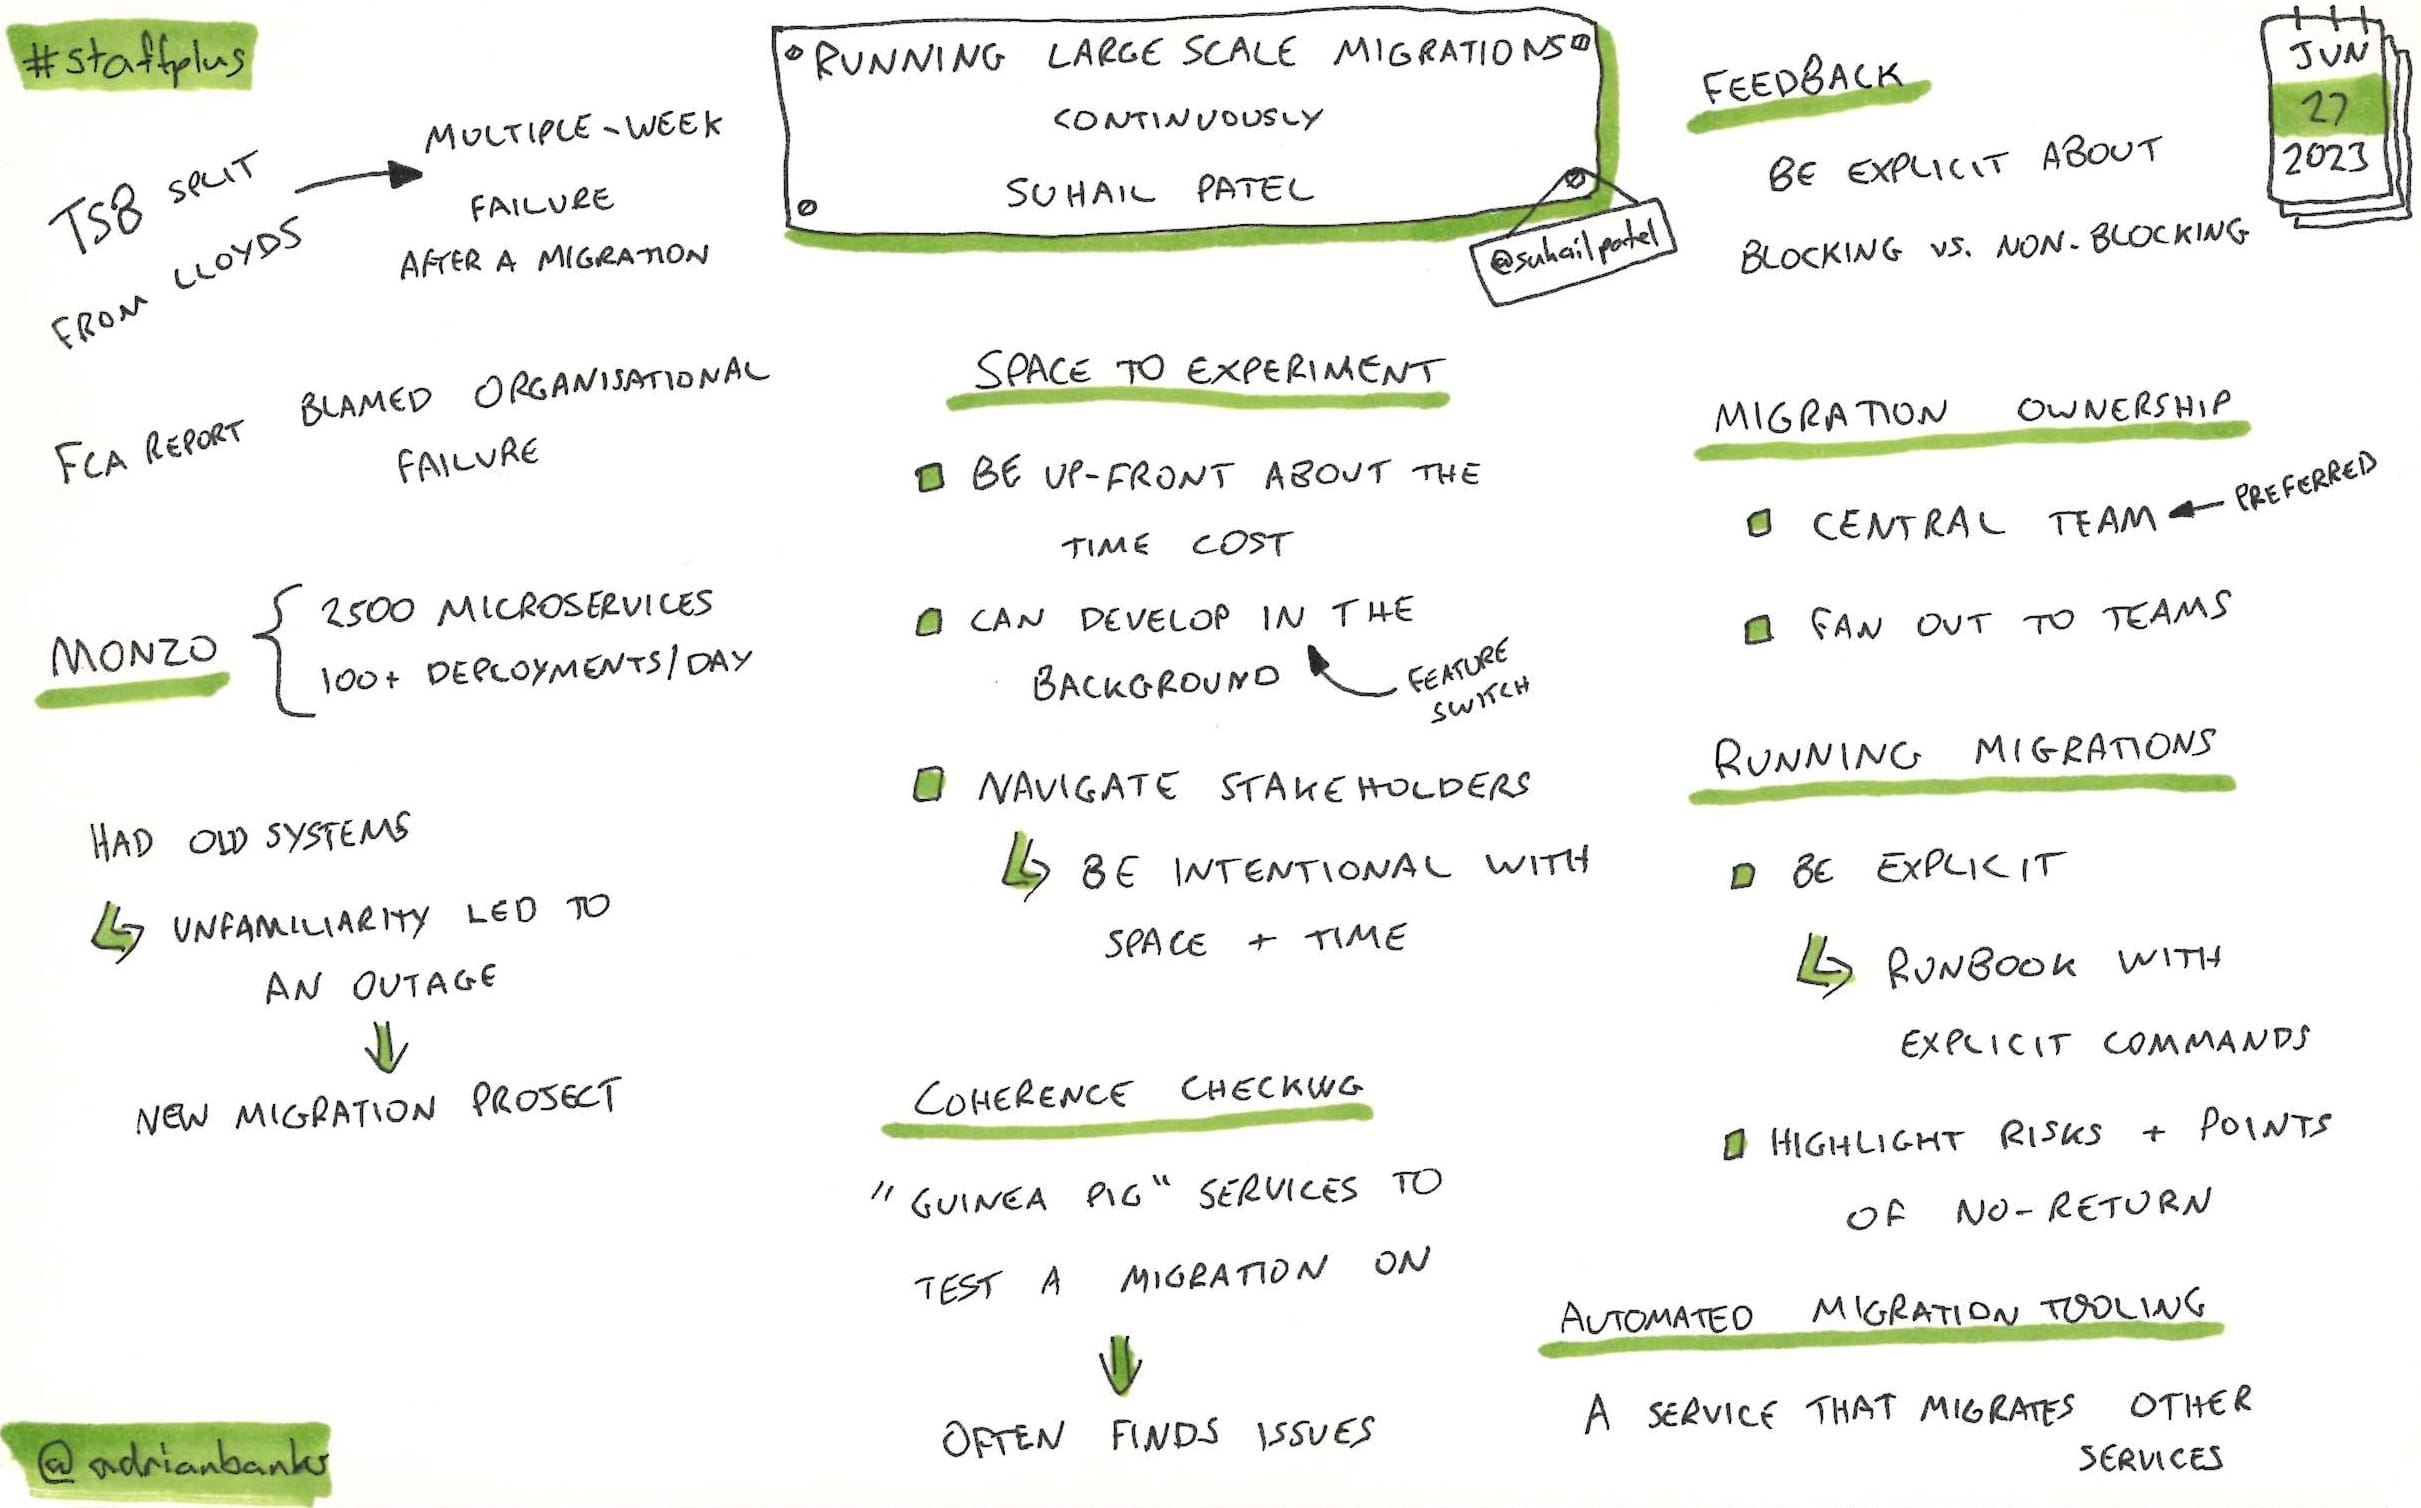 #staffplus
RUNNING LARGE SCALE MIGRATIONS
CONTINUOUSLY
SUHAIL PATEL
@suhailpatel
JUN
27
2023
TSB SPLIT
FROM LLOYDS
MULTIPLE-WEEK
FAILURE
AFTER A MIGRATION
FCA REPORT BLAMED ORGANISATIONAL
FAILURE
MONZO
2500 MICROSERVICES
100+ DEPLOYMENTS/DAY
HAD OLD SYSTEMS
UNFAMILIARITY LED TO
AN OUTAGE
NEW MIGRATION PROJECT
SPACE TO EXPERIMENT
BE UP-FRONT ABOUT THE
TIME COST
CAN DEVELOP IN THE
BACKGROUND
FEATURE
SWITCH
NAVIGATE STAKEHOLDERS
BE INTENTIONAL WITH
SPACE + TIME
COHERENCE CHECKING
"GUINEA PIG" SERVICES TO
TEST A MIGRATION ON
OFTEN FINDS ISSUES
FEEDBACK
BE EXPLICIT ABOUT
BLOCKING VS. NON-BLOCKING
MIGRATION OWNERSHIP
CENTRAL TEAM
PREFERRED
FAN OUT TO TEAMS
RUNNING MIGRATIONS
BE EXPLICIT
RUNBOOK WITH
EXPLICIT COMMANDS
HIGHLIGHT RISKS + POINTS
OF NO-RETURN
AUTOMATED MIGRATION TOOLING
A SERVICE THAT MIGRATES OTHER
SERVICES
@adrianbanks